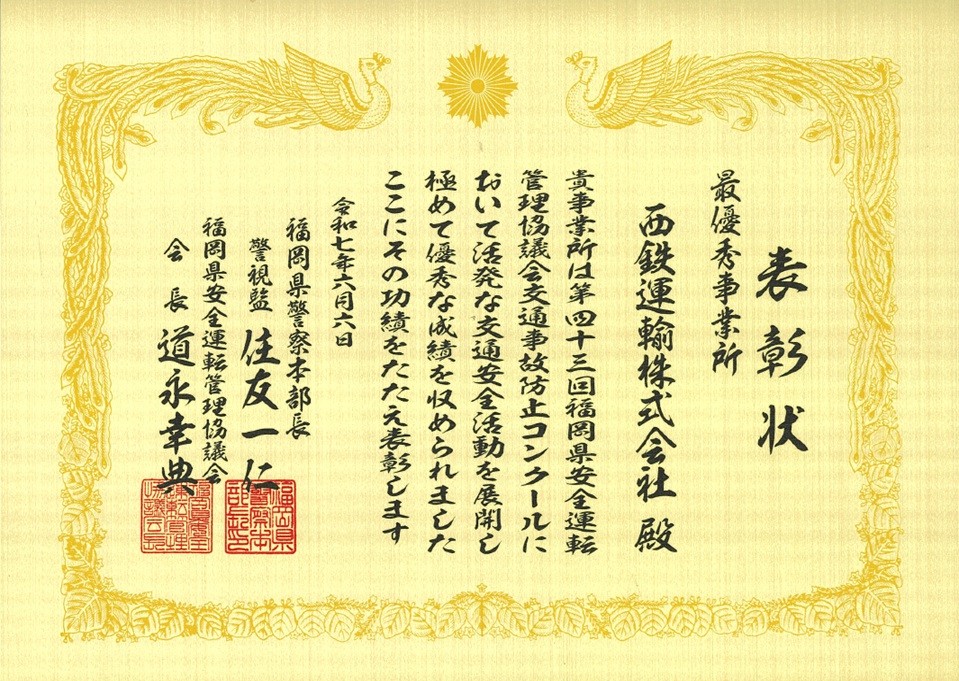 表彰状
最優秀事業所
西鉄運輸株式会社 殿
貴事業所は第四十三回福岡県安全運転
管理協議会交通事故防止コンクールに
おいて活発な交通安全活動を展開し
極めて優秀な成績を収められました
ここにその功績をたたえ表彰します
令和七年六月六日
福岡県警察本部長
警視監 住友一仁
福岡県安全運転管理協議会
会長 道永幸典
福岡県警察本部長印